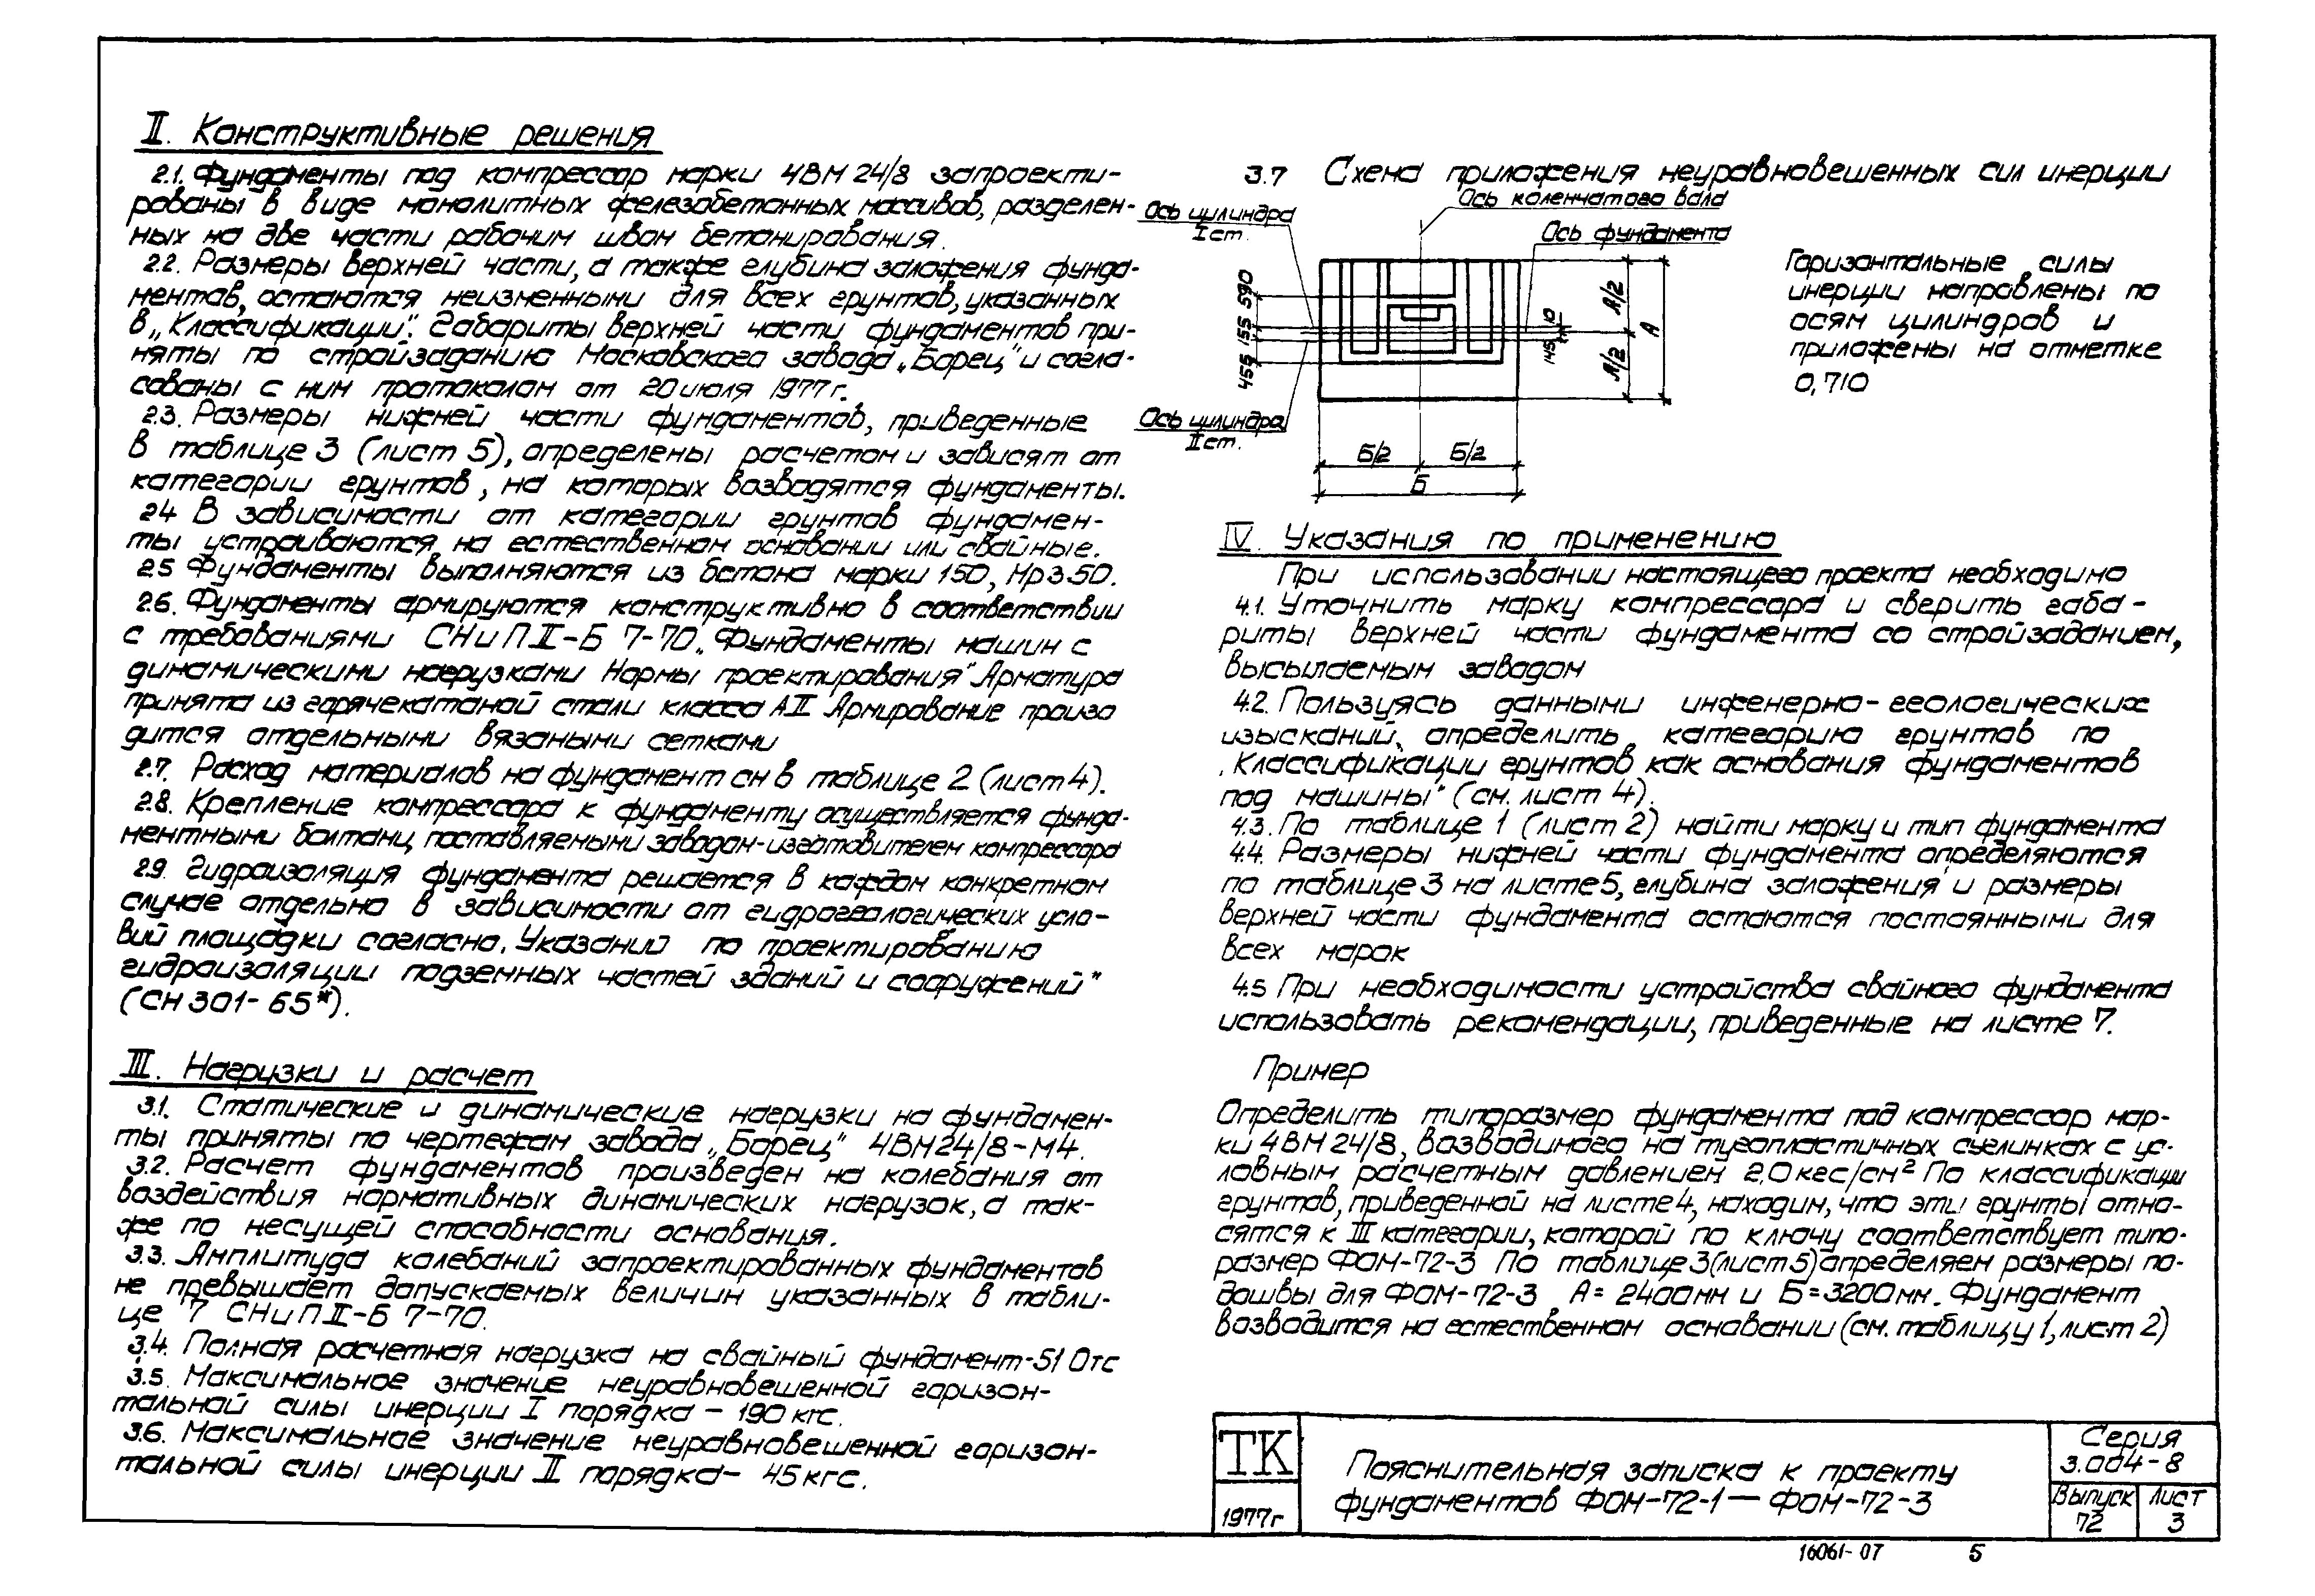 II. Конструктивные решения
2.1. Фундаменты под компрессор марки 4ВМ 24/8 запроекти-
рованы в виде монолитных железобетонных массивов, разделен-
ных на две части рабочим швом бетонирования.
2.2. Размеры верхней части, а также глубина заложения фунда-
ментов, остаются неизменными для всех грунтов, указанных
в „Классификации". Габариты верхней части фундаментов при-
няты по стройзаданию Московского завода „Борец" и согла-
сованы с ним протоколом от 20 июля 1977 г.
2.3. Размеры нижней части фундаментов, приведенные
в таблице 3 (лист 5), определены расчетом и зависят от
категории грунтов, на которых возводятся фундаменты.
2.4 В зависимости от категории грунтов фундамен-
ты устраиваются на естественном основании или свайные.
2.5 Фундаменты выполняются из бетона марки 150, Мрз 50.
2.6. Фундаменты армируются конструктивно в соответствии
с требованиями СНиП II-Б 7-70 „Фундаменты машин с
динамическими нагрузками Нормы проектирования" Арматура
принята из горячекатаной стали класса АII Армирование произво
дится отдельными вязаными сетками
2.7. Расход материалов на фундамент см в таблице 2 (лист 4).
2.8. Крепление компрессора к фундаменту осуществляется фунда-
ментными болтами, поставляемыми заводом-изготовителем компрессора
2.9. Гидроизоляция фундамента решается в каждом конкретном
случае отдельно в зависимости от гидрогеологических усло-
вий площадки согласно „Указаний по проектированию
гидроизоляции подземных частей зданий и сооружений"
(СН 301-65*).
III. Нагрузки и расчет
3.1. Статические и динамические нагрузки на фундамен-
ты приняты по чертежам завода „Борец" 4ВМ24/8-М4.
3.2. Расчет фундаментов произведен на колебания от
воздействия нормативных динамических нагрузок, а так-
же по несущей способности основания.
3.3. Амплитуда колебаний запроектированных фундаментов
не превышает допускаемых величин указанных в табли-
це 7 СНиП II-Б 7-70.
3.4. Полная расчетная нагрузка на свайный фундамент-51 0тс
3.5. Максимальное значение неуравновешенной горизон-
тальной силы инерции I порядка - 190 кгс.
3.6. Максимальное значение неуравновешенной горизон-
тальной силы инерции II порядка - 45 кгс.
3.7 Схема приложения неуравновешенных сил инерции
Ось коленчатого вала
Ось цилиндра
I ст.
Ось фундамента
590
155
455
10
145
А/2
А/2
А
Ось цилиндра
II ст.
Б/2
Б/2
Б
Горизонтальные силы
инерции направлены по
осям цилиндров и
приложены на отметке
0,710
IV. Указания по применению
При использовании настоящего проекта необходимо
4.1. Уточнить марку компрессора и сверить габа-
риты верхней части фундамента со стройзаданием,
высылаемым заводом
4.2. Пользуясь данными инженерно-геологических
изысканий, определить категорию грунтов по
„Классификации грунтов как основания фундаментов
под машины" (см. лист 4).
4.3. По таблице 1 (лист 2) найти марку и тип фундамента
4.4. Размеры нижней части фундамента определяются
по таблице 3 на листе 5, глубина заложения и размеры
верхней части фундамента остаются постоянными для
всех марок
4.5 При необходимости устройства свайного фундамента
использовать рекомендации, приведенные на листе 7.
Пример
Определить типоразмер фундамента под компрессор мар-
ки 4ВМ 24/8, возводимого на тугопластичных суглинках с ус-
ловным расчетным давлением 2,0 кгс/см² По классификации
грунтов, приведенной на листе 4, находим, что эти грунты отно-
сятся к III категории, которой по ключу соответствует типо-
размер ФОМ-72-3 По таблице 3 (лист 5) определяем размеры по-
дошвы для ФОМ-72-3 А = 2400мм и Б = 3200мм. Фундамент
возводится на естественном основании (см. таблицу 1, лист 2)
ТК
1977г
Пояснительная записка к проекту
фундаментов ФОМ-72-1 — ФОМ-72-3
Серия
3.004-8
Выпуск
72
Лист
3
16061-07
5